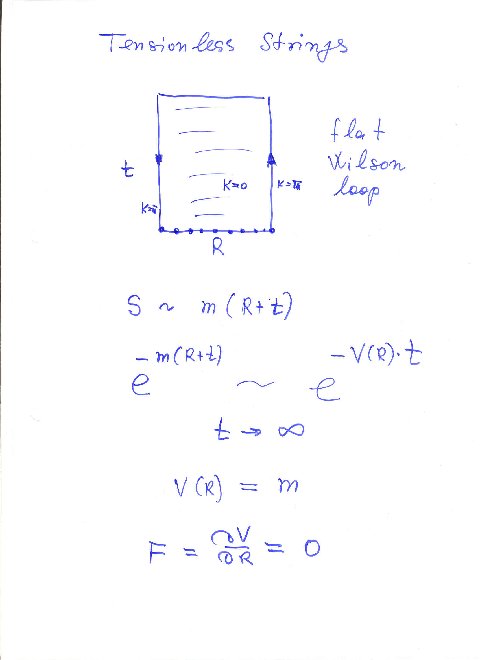 Tensionless Strings
flat
Wilson
loop
t
K=0
K=π
K=π
R
S ~ m(R+t)
e^{-m(R+t)} ~ e^{-V(R)·t}
t → ∞
V(R) = m
F = ∂V/∂R = 0